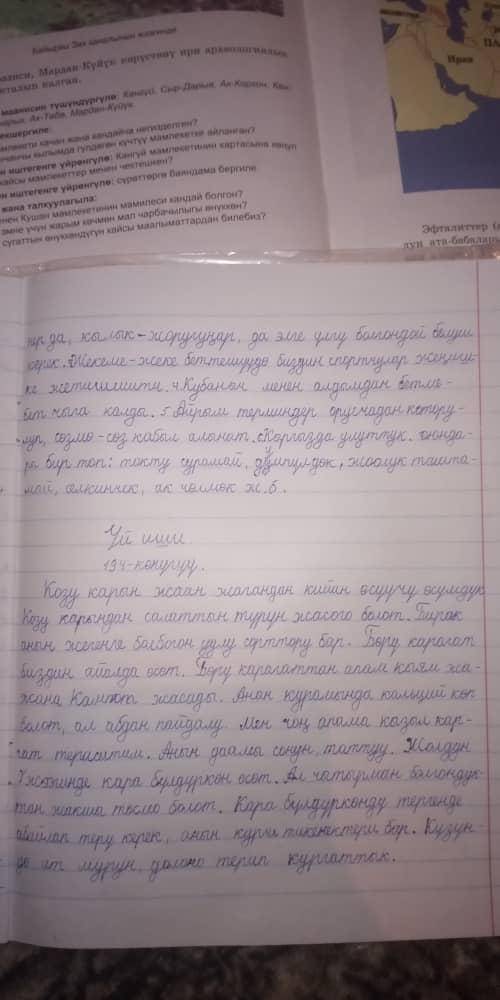 Байыркы Эки
маанисин түшүндүргүлө: Кангүй, Сыр-Дарыя,
Ак-Тебе, Мардан-Күйүк.
качан жана кандайча негизделген?
кылымда гүлдөгөн күчтүү мамлекетке айланган?
иштегенге үйрөнгүлө: Кангүй мамлекетинин картасына көңүл
кайсы мамлекеттер менен чектешкен?
иштегенге үйрөнгүлө: сүрөттөргө баяндама бергиле.
жана талкуулагыла:
Кушан мамлекетинин мамилеси кандай болгон?
эмне үчүн жарым көчмөн мал чарбачылыгы өнүккөн?
сугаттын өнүккөндүгүн кайсы маалыматтардан билебиз?
Иран
ПА
Эфталиттер
дун ата-бабалары
да, кылык-жоругуңар, да элге үлгү болгондой болуш
керек. Жекеме-жеке беттешүүдө биздин спортчулар жеңиш-
ке жетишишти. 4. Кубанып менен алдымдан бетме-
бет чыга калды. 5 Айрым терминдер орусчадан котору-
луп, сөзмө-сөз кабыл алынат. Кыргызда улуттук оюнда-
ры бир топ: токту сурамай, дүмпүлдөк, жоолук ташта-
май, селкинчек, ак чөлмөк ж.б.
Үй иши.
194-көнүгүү.
Козу карын жаан жаагандан кийин өсүүчү өсүмдүк
Козу карындан салаттын түрүн жасоого болот. Бирок
анын жегенге болбогон уулу сорттору бар. Бөрү карагат
биздин айылда өсөт. Бөрү карагаттан апам кыям жа-
жана, Компот жасады. Анын курамында кальций көп
болот, ал абдан пайдалуу. Мен чоң апама кызыл кар-
гат терөшөтам. Анын даамы сонун, таттуу. Жолдун
жээгинде кара бүлдүркөн өсөт. Ал чатырман болгондук-
тан жакшы тосмо болот. Кара бүлдүркөндү тергенде
абайлап терүү керек, анын курч тикенектери бар. Күзүн-
дө ит мурун, долоно терип кургаттык.